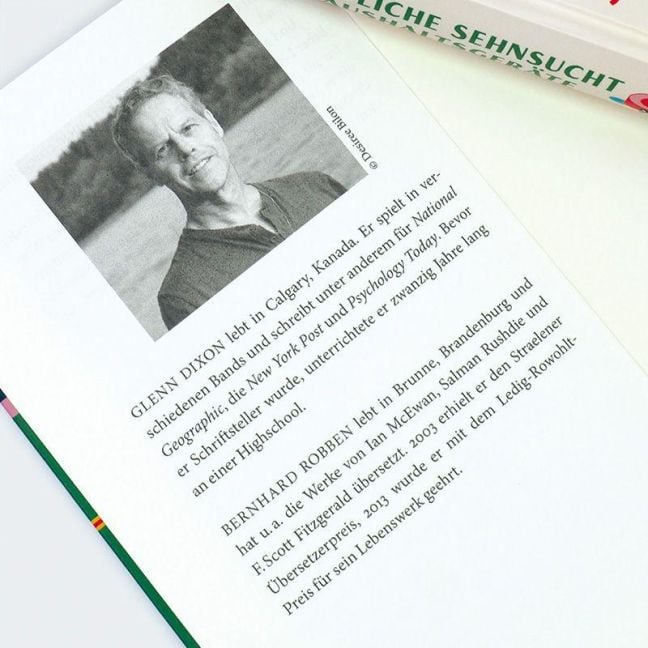 LICHE SEHNSUCHT
HAUSHALTSGERÄTE
© Desiree Bilon
GLENN DIXON lebt in Calgary, Kanada. Er spielt in ver-
schiedenen Bands und schreibt unter anderem für National
Geographic, die New York Post und Psychology Today. Bevor
er Schriftsteller wurde, unterrichtete er zwanzig Jahre lang
an einer Highschool.
BERNHARD ROBBEN lebt in Brunne, Brandenburg und
hat u. a. die Werke von Ian McEwan, Salman Rushdie und
F. Scott Fitzgerald übersetzt. 2003 erhielt er den Straelener
Übersetzerpreis, 2013 wurde er mit dem Ledig-Rowohlt-
Preis für sein Lebenswerk geehrt.